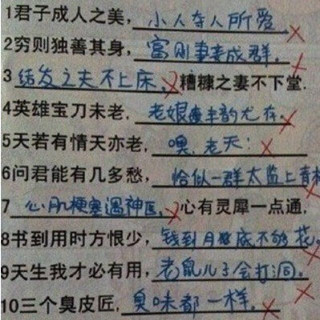 1君子成人之美，小人夺人所爱
2穷则独善其身，富则妻妾成群．
3结发之夫不上床，糟糠之妻不下堂．
4英雄宝刀未老，老娘丰韵尤存．
5天若有情天亦老，嘿．老天：
6问君能有几多愁，恰似一群太监上青楼
7心肌梗塞遇神医，心有灵犀一点通，
8书到用时方恨少，钱到月底不够花．
9天生我才必有用，老鼠儿子会打洞．
10三个臭皮匠，臭味都一样．